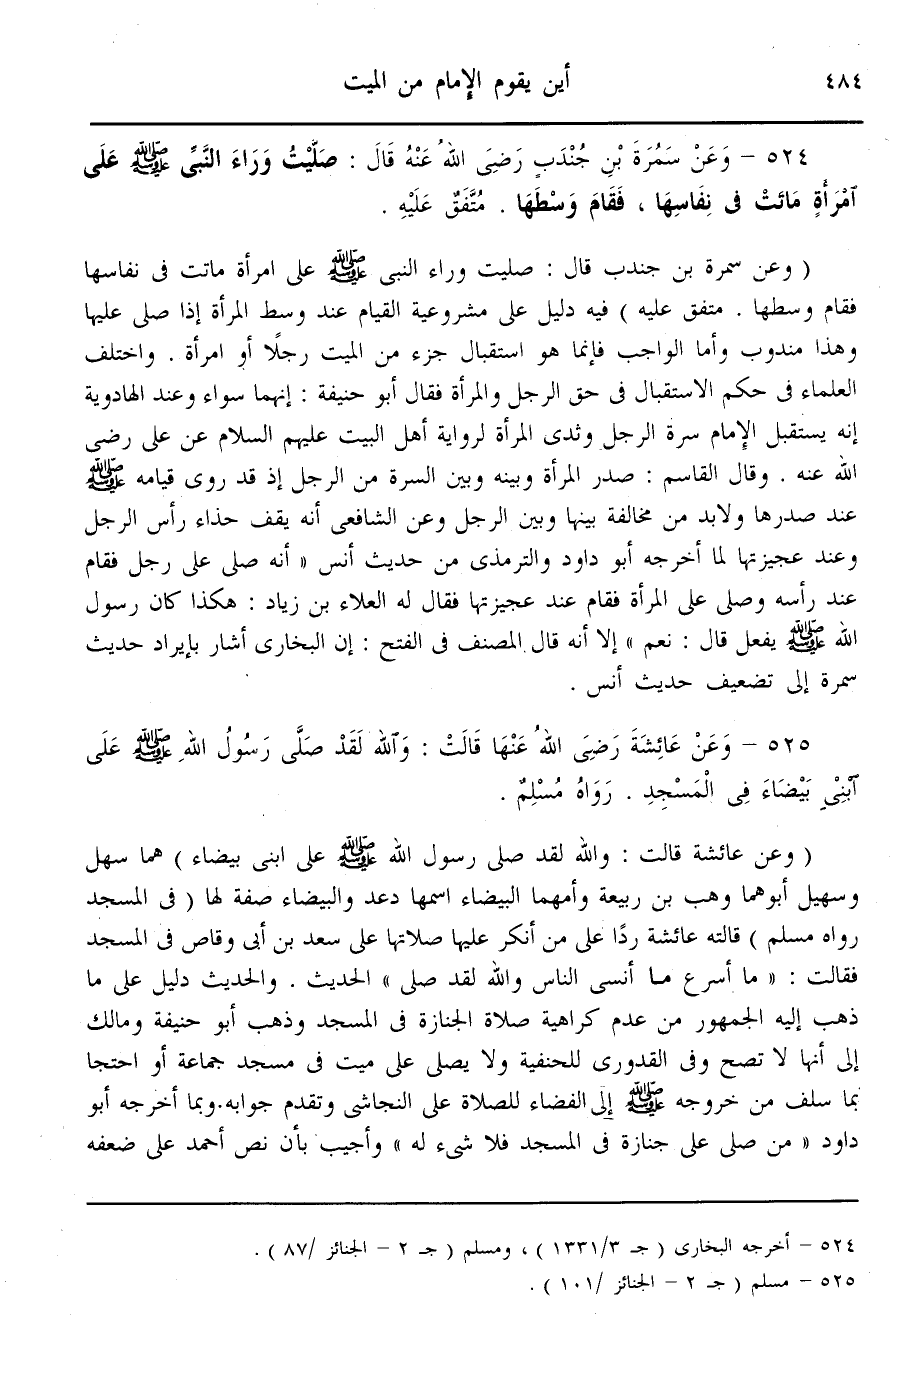 ٤٨٤ أين يقوم الإمام من الميت
٥٢٤ – وَعَنْ سَمُرَةَ بْنِ جُنْدَبٍ رَضِىَ اللهُ عَنْهُ قَالَ : صَلَّيْتُ وَرَاءَ النَّبىِّ ﷺ عَلَى
آمْرَأَةٍ مَاتَتْ فى نِفَاسِهَا ، فَقَامَ وَسْطَهَا . مُتَّفَقٌ عَلَيْهِ .
( وعن سمرة بن جندب قال : صليت وراء النبى ﷺ على امرأة ماتت فى نفاسها
فقام وسطها . متفق عليه ) فيه دليل على مشروعية القيام عند وسط المرأة إذا صلى عليها
وهذا مندوب وأما الواجب فإنما هو استقبال جزء من الميت رجلًا أو امرأة . واختلف
العلماء فى حكم الاستقبال فى حق الرجل والمرأة فقال أبو حنيفة : إنهما سواء وعند الهادوية
إنه يستقبل الإمام سرة الرجل وثدى المرأة لرواية أهل البيت عليهم السلام عن على رضى
الله عنه . وقال القاسم : صدر المرأة وبينه وبين السرة من الرجل إذ قد روى قيامه ﷺ
عند صدرها ولابد من مخالفة بينها وبين الرجل وعن الشافعى أنه يقف حذاء رأس الرجل
وعند عجيزتها لما أخرجه أبو داود والترمذى من حديث أنس « أنه صلى على رجل فقام
عند رأسه وصلى على المرأة فقام عند عجيزتها فقال له العلاء بن زياد : هكذا كان رسول
الله ﷺ يفعل قال : نعم » إلا أنه قال المصنف فى الفتح : إن البخارى أشار بإيراد حديث
سمرة إلى تضعيف حديث أنس .
٥٢٥ – وَعَنْ عَائِشَةَ رَضِىَ اللهُ عَنْهَا قَالَتْ : وَآللهِ لَقَدْ صَلَّى رَسُولُ اللهِ ﷺ عَلَى
آبْنىْ بَيْضَاءَ فِى الْمَسْجِدِ . رَوَاهُ مُسْلِمٌ .
( وعن عائشة قالت : والله لقد صلى رسول الله ﷺ على ابنى بيضاء ) هما سهل
وسهيل أبوهما وهب بن ربيعة وأمهما البيضاء اسمها دعد والبيضاء صفة لها ( فى المسجد
رواه مسلم ) قالته عائشة ردًا على من أنكر عليها صلاتها على سعد بن أبى وقاص فى المسجد
فقالت : « ما أسرع ما أنسى الناس والله لقد صلى » الحديث . والحديث دليل على ما
ذهب إليه الجمهور من عدم كراهية صلاة الجنازة فى المسجد وذهب أبو حنيفة ومالك
إلى أنها لا تصح وفى القدورى للحنفية ولا يصلى على ميت فى مسجد جماعة أو احتجا
بما سلف من خروجه ﷺ إلى الفضاء للصلاة على النجاشى وتقدم جوابه.وبما أخرجه أبو
داود « من صلى على جنازة فى المسجد فلا شىء له » وأجيب بأن نص أحمد على ضعفه
٥٢٤ – أخرجه البخارى ( جـ ١٣٣١/٣ ) ، ومسلم ( جـ ٢ – الجنائز /٨٧ ) .
٥٢٥ – مسلم ( جـ ٢ – الجنائز /١٠١ ) .